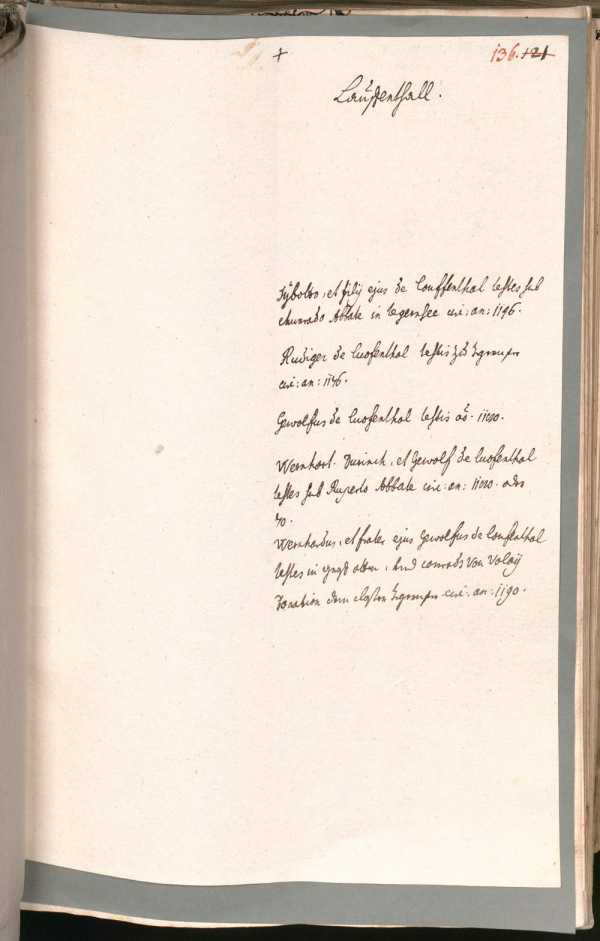 +
136. 121
Lauffenthall.
Syboto, et filij ejus de Louffenthal testes sub
chunrado Abbate in tegernsee circ: an: 1196.
Rudiger de luofenthal testis
circ: an: 1176.
Gewolfus de luofenthal testis aō. 1180.
Wernhart. Durinch, et Gewolf de luofenthal
testes sub Ruperto Abbate circ: an: 1180. oder
90.
Wernhardus, et frater ejus Gewolfus de Loufenthal
testes in otten, und conrads von
Donation dem closter circ: an: 1190.